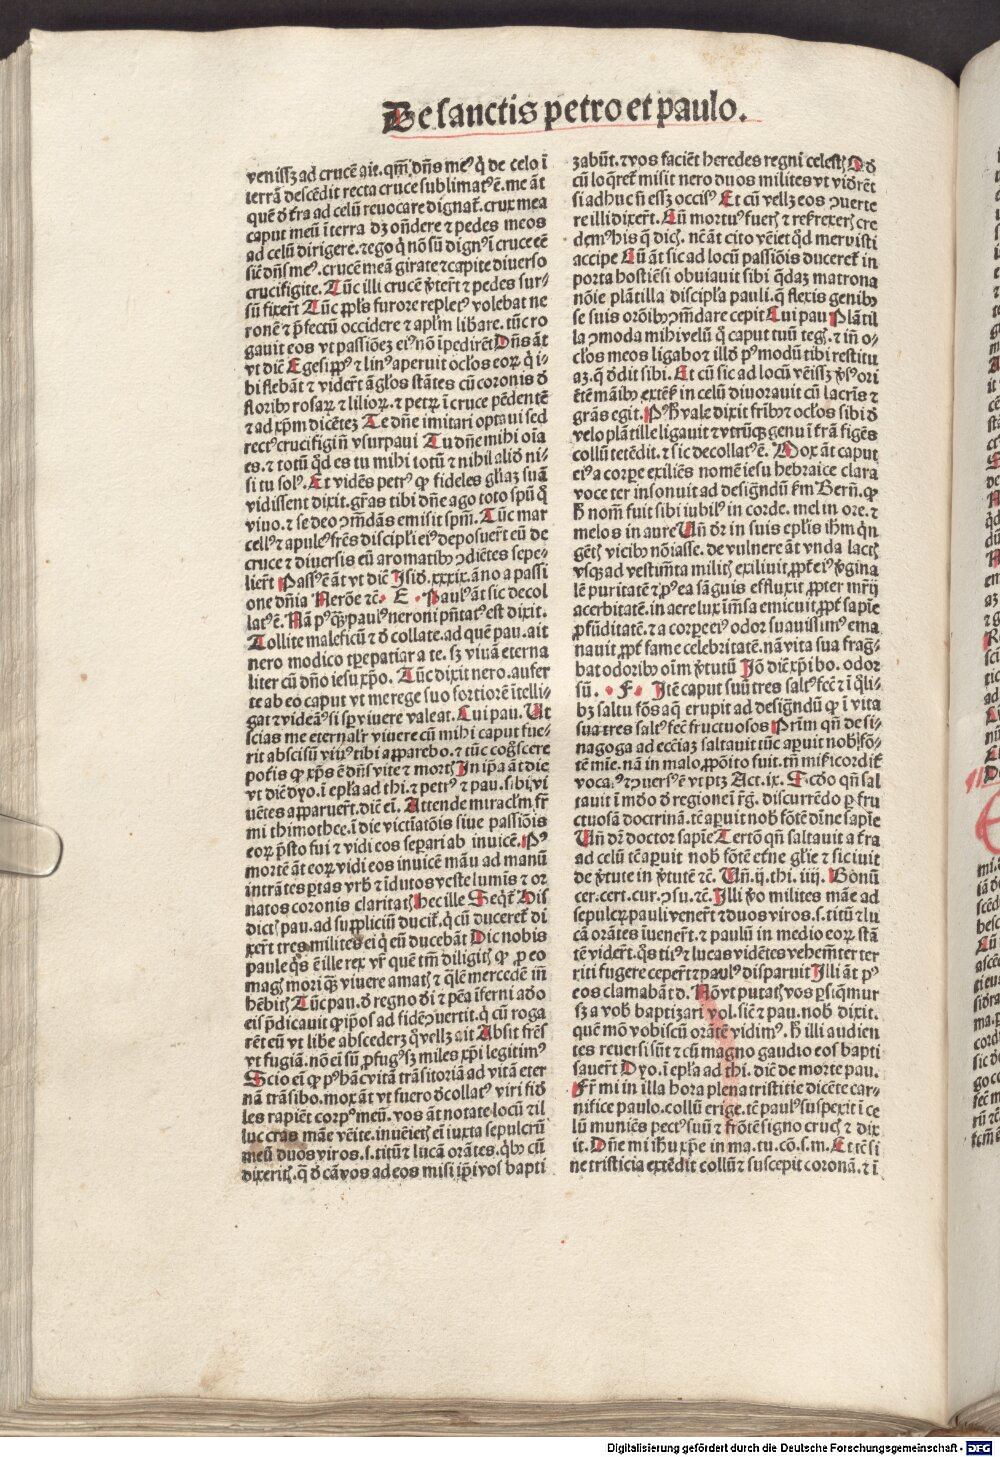 De sanctis petro et paulo.
venissꝫ ad crucē aie. qm̄ dn̄s meꝰ q̇ de celo ī
terrā descēdit recta cruce sublimatꝰ ē. me āt
quē ð t̄ra ad celū reuocare dignat̄. crux mea
caput meū ī terra dꝫ on̄dere ⁊ pedes meos
ad celū dirigere. ⁊ ego q̇ nō sū dignꝰ ī cruce eē
sič dn̄s meꝰ. crucē meā girate ⁊ capite diuerso
crucifigite. Tūc illi crucē v̄tert̄ ⁊ pedes sur-
sū fixert̄ Tūc ppl̄s furore repletꝰ volebat ne
ronē ⁊ p̄fectū occidere ⁊ apl̄m libare. tūc ro
gauit eos vt passiōeꝫ eiꝰ nō īpedirēt Dn̄s āt
vt diē Egesippꝰ ⁊ linꝰ aperuit ocl̄os eoꝝ q̇ i-
bi flebāt ⁊ vidert̄ āgl̄os stātes cū coronis ð
floribꝰ rosaꝝ ⁊ lilioꝝ. ⁊ petꝝ ī cruce pēdentē
⁊ ad xp̄m dicētеꝫ Te dn̄e imitari optaui sed
rectꝰ crucifigi n̄ vsurpaui Tu dn̄e mihi oīa
es. ⁊ totū q̇d es tu mihi totū ⁊ nihil aliđ ni-
si tu solꝰ. Et vidēs petrꝰ ꝙ fideles gl̄iaꝫ suā
vidissent dixit. gr̄as tibi dn̄e ago toto spū q̇
viuo. ⁊ se deo ꝯm̄dās emisit spm̄. Tūc mar
cellꝰ ⁊ apuleꝰ fr̄es discipli eiꝰ deposuert̄ eū de
cruce ⁊ diuersis eū aromatibꝰ ꝯdiētes sepe-
liert̄ Passꝰ ē āt vt diē Isið. xxxix. āno a passi
one dn̄ia Nerōe ⁊č. E. Paulꝰ āt sic decol
latꝰ ē. Nā pꝰ qꝫ paulꝰ neroni pn̄tatꝰ est dixit.
Tollite maleficū ⁊ ð collate. ad quē pau. ait
nero modico tp̄e patiar a te. sꝫ viuā eterna
liter cū dn̄o iesu xp̄o. Tūc dixit nero. aufer
te ab eo caput vt me rege suo fortiorē ītelli-
gat ⁊ videāꝰ si sp̄ viuere valeat. Cui pau. Ut
scias me eternalr̄ viuere cū mihi caput fue-
rit abscisū viuꝰ tibi apparebo. ⁊ tūc cogn̄scere
potis ꝙ xp̄s ē dn̄s vite ⁊ mortꝭ In ip̄a āt die
vt diē dyo. ī epl̄a ad thi. ⁊ petrꝰ ⁊ pau. sibi vi
uētes apparuert̄. diē ei. Attende miracl̄m fr̄
mi thimothee. ī die victīatōis siue passiōis
eoꝝ p̄sto fui ⁊ vidi eos separi ab inuicē. Pꝰ
mortē āt eoꝝ vidi eos inuicē māu ad manū
intrātes p̄tas vrb̄ ⁊ īdutos veste lumīs ⁊ or
natos coronis claritatꝭ hec ille Seqt̄ Dis
dictꝭ pau. ad suppliciū ducit̄. q̇ cū duceret̄ di
xert̄ tres milites ei q̇ eū ducebāt Dic nobis
paule q̇s ē ille rex vr̄ quē tm̄ diligitꝭ ꝙ p eo
magꝭ mori qꝫ viuere amatꝭ ⁊ q̄lē mercedē īn
hēbitꝭ Tūc pau. ð regno ði ⁊ pēa īferni ado
eis p̄dicauit ꝙ ip̄os ad fidē ꝯuertit. q̇ cū roga
rēt eū vt libe abscederꝫ q̇ vellꝫ ait Absit fr̄es
vt fugiā. nō ei sū pfugꝰ sꝫ miles xp̄i legitimꝰ
Scio ei ꝙ pꝰ hāc vitā trāsitoriā ad vitā eter
nā trāsibo. mox āt vt fuero ðcollatꝰ viri fið
les rapiēt corpꝰ meū. vos āt notate locū ⁊ il
luc cras māe vēite. inuēietꝭ ei iuxta sepulcrū
meū duos viros. s. titū ⁊ lucā orātes. q̇bꝰ cū
dixeritꝭ. q̇ ð cā vos ad eos misi ip̄i vos bapti
zabūt. ⁊ vos faciēt heredes regni celestꝭ Dð
cū loq̄ret̄ misit nero duos milites vt viðrēt
si adhuc n̄ essꝫ occisꝰ Et cū vellꝫ eos ꝯuerte
re illi dixert̄. Cū mortuꝰ fuerꝭ ⁊ refrexerꝭ cre
demꝰ his q̄ dicꝭ. nc̄ āt cito vēi et q̇d meruisti
accipe Cū āt sic ad locū passiōis duceret̄ in
porta hostiēsi obuiauit sibi q̄daꝫ matrona
nōie plātilla discipl̄a pauli. q̄ flexis genibꝰ
se suis orōibꝰ ꝯm̄dare cepit Cui pau Plātil
la ꝯmoda mihi velū q̇ caput tuū tegꝭ. ⁊ in̄ o-
cl̄os meos ligabo ⁊ illð pꝰ modū tibi restitu
aꝫ. q̄ ðdit sibi. Et cū sic ad locū vēissꝫ v̄sꝰ ori
ētē māibꝰ extēt̄ in celū diu orauit cū lacr̄is ⁊
gr̄as egit. Pꝰ h̄ vale dixit fr̄ibꝰ ⁊ ocl̄os sibi ð
velo plātille ligauit ⁊ vtrūqꝫ genu ī t̄rā figēs
collū tetēdit. ⁊ sic decollatꝰ ē. Mox āt caput
eiꝰ a corpe exiliēs nomē iesu hebraice clara
voce ter insonuit ad designdū fm̄ Bern̄. ꝙ
h̄ nom̄ fuit sibi iubilꝰ in corde. mel in ore. ⁊
melos in aure Un̄ ðr in suis epl̄is ih̄m q̇n
gētꝭ vicibꝰ nōiasse. de vulnere āt vnda lactꝭ
vsqꝫ ad vestim̄ta militꝭ exiliuit. ppt̄ eiꝰ v̄gina
lē puritatē ⁊ pꝰ ea sāguis effluxit. ppter mr̄ij
acerbitatē. in aere lux īm̄sa emicuit. ppt̄ sapīe
pfūditatē. ⁊ a corpe eiꝰ odor suauissimꝰ ema
nauit. ppt̄ fame celebritatē. nā vita sua frag-
bat odoribꝰ oīm v̄tutū Iō diē xp̄i bo. odor
sū. F. Itē caput suū tres saltꝰ fec̄ ⁊ ī q̇li-
bꝫ saltu fōs aq̄ erupit ad desigdū ꝙ ī vita
sua tres saltꝰ fec̄ fructuosos Prīm qn̄ de si-
nagoga ad ecciaꝫ saltauit tūc apuit nob̄ fō-
tē mīe. nā in malo. ppōito fuit. tn̄ mi̅ricordit̄
vocatꝰ ⁊ ꝯuersꝰ ē vt ptꝫ Act. ix. Scðo qn̄ sal
tauit ī mðo ð regione ī r̄g. discurrēdo p fru
ctuosā doctrinā. tē apuit nob̄ fōtē dīne sapīe
Un̄ dr̄ doctor sapīe Tertō qn̄ saltauit a t̄ra
ad celū tc̄ apuit nob̄ fōtē etn̄e gl̄ie ⁊ sic iuit
de v̄tute in v̄tutē ⁊č. Un̄. ij. thi. iiij. Bonū
cer. cert. cur. ꝯsu. ⁊č. Illi v̄o milites māe ad
sepulcꝝ pauli venert̄ ⁊ duos viros. s. titū ⁊ lu
cā orātes īuenert̄. ⁊ paulū in medio eoꝝ stā
tē vidert̄. q̇s titꝰ ⁊ lucas vidētes vehem̄ter ter
riti fugere cepert̄ ⁊ paulꝰ disparuit Illi āt pꝰ
eos clamabāt ð. Nō vt putatꝭ vos psiq̄mur
sꝫ a vob̄ baptizari vol. sic̄ ⁊ pau. nob̄ dixit.
quē mō vobiscū orātē vidimꝰ. h̄ illi audien
tes reuersi sūt ⁊ cū magno gaudio eos bapti
sauert̄ Dyo. ī epl̄a ad thi. diē de morte pau.
Fr̄ mi in illa hora plena tristitie dicēte car-
nifice paulo. collū erige. tē paulꝰ suspexit ī ce
lū muniēs pectꝰ suū ⁊ frōtē signo crucꝭ ⁊ dix
it. Dn̄e mi ih̄u xp̄e in ma. tu. cō. s. m. Et tē si
ne tristicia extēdit collū ⁊ suscepit coronā. ⁊ ī
Digitalisierung gefördert durch die Deutsche Forschungsgemeinschaft - DFG